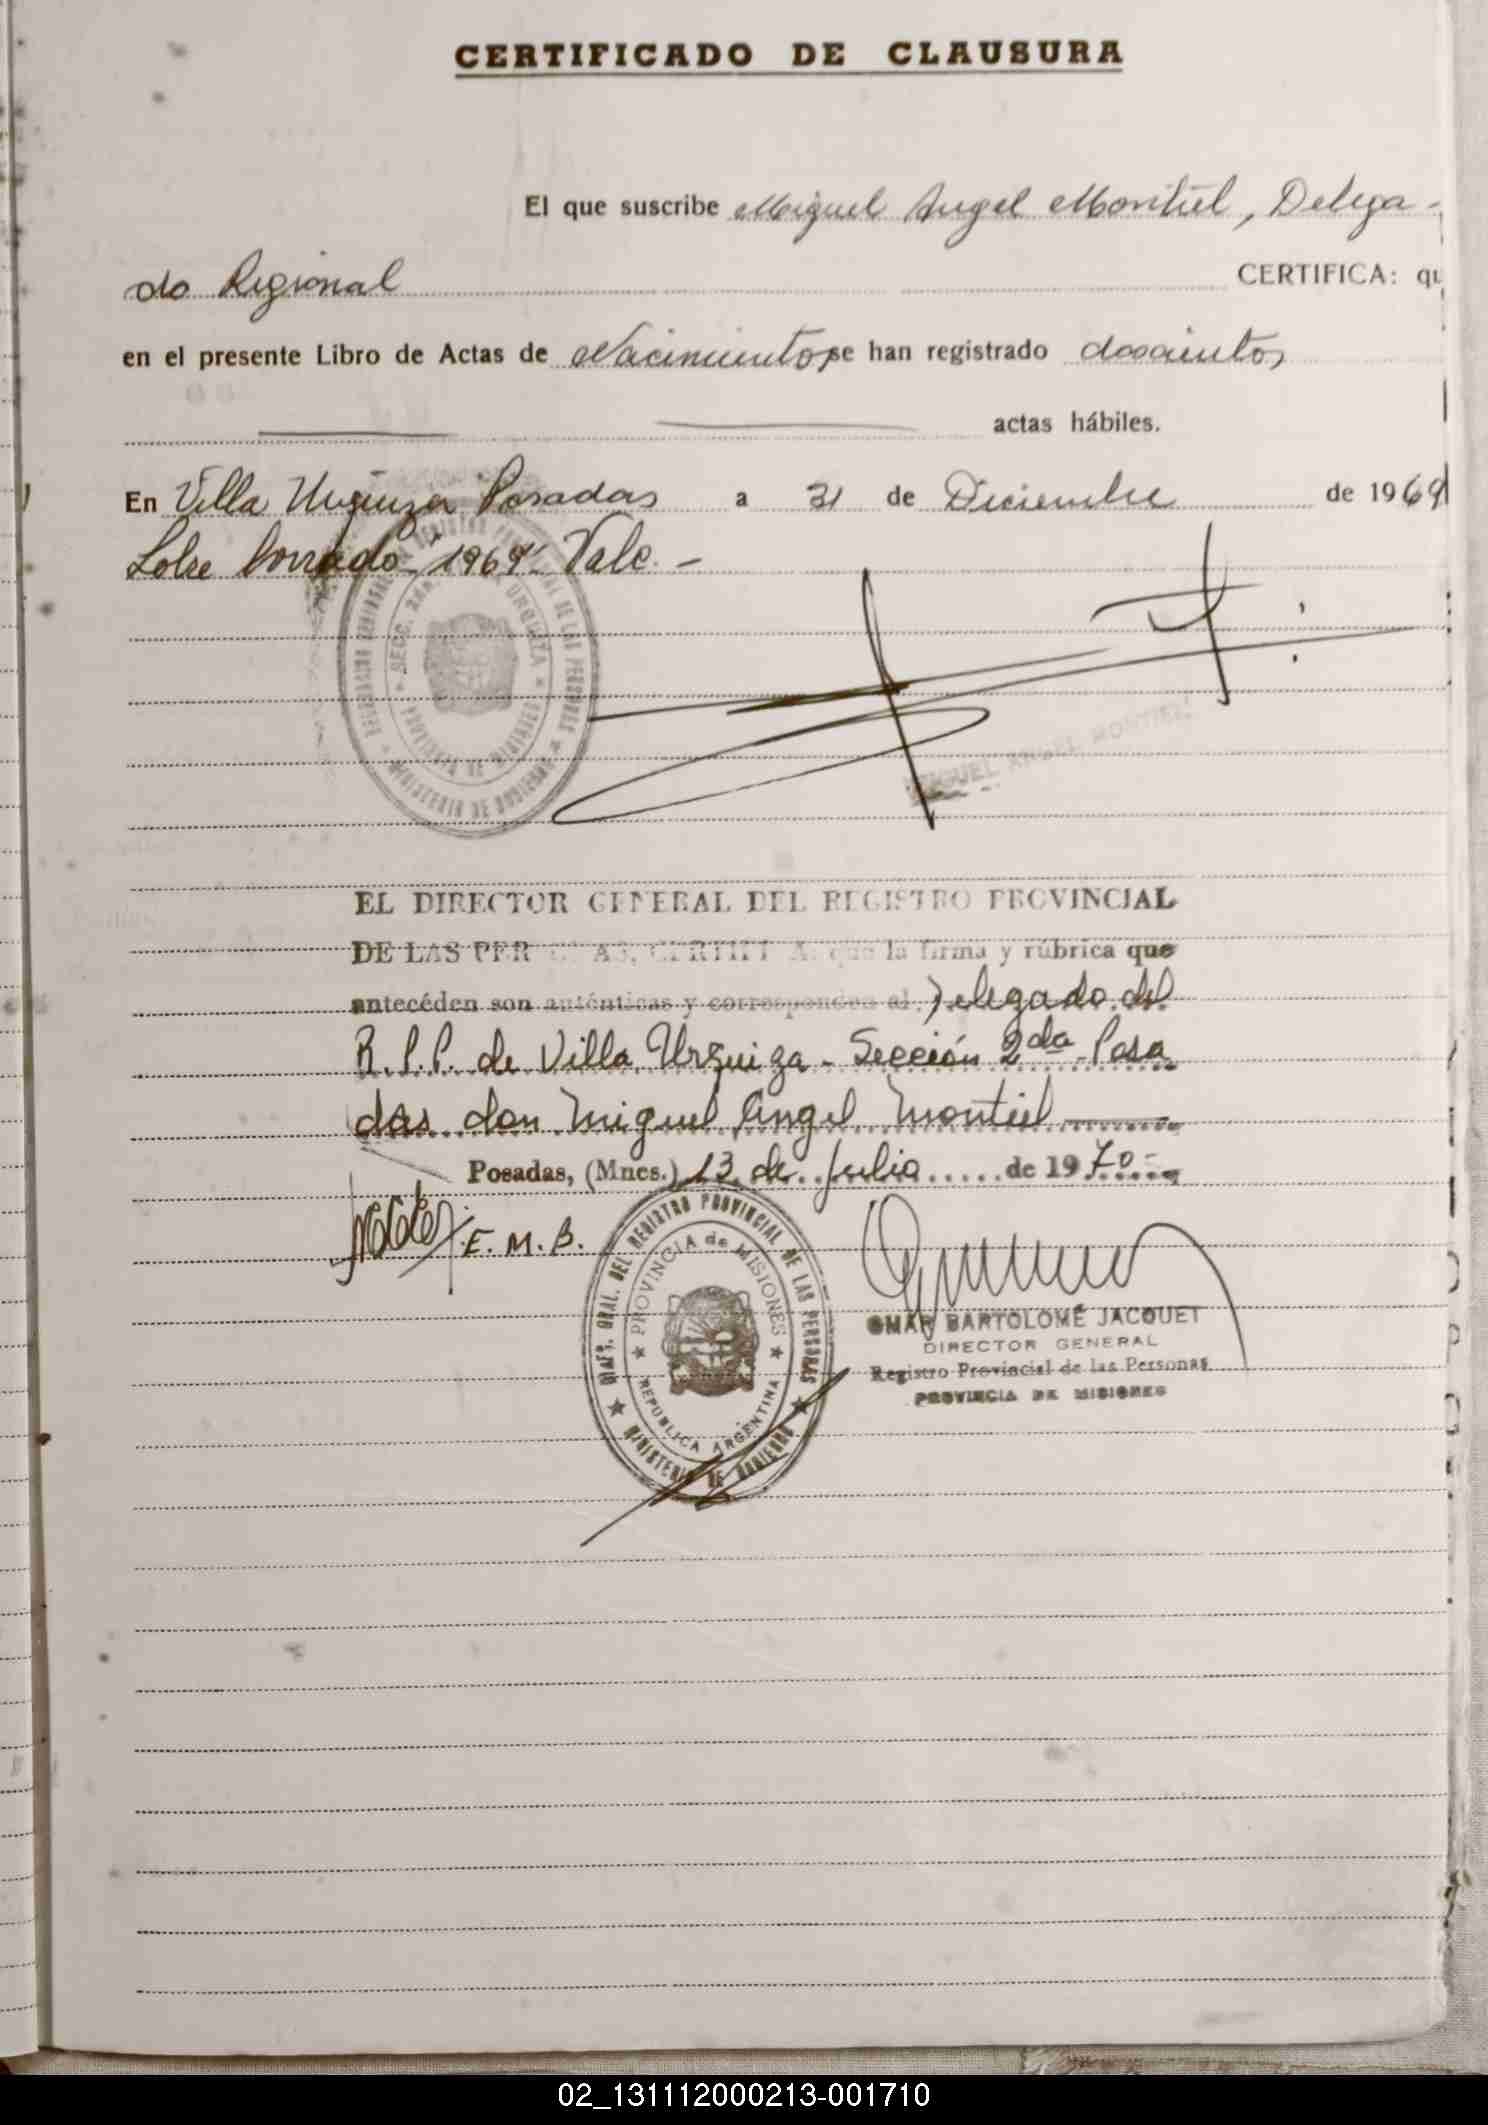 CERTIFICADO DE CLAUSURA
El que suscribe Miguel Angel Montiel, Delega-
do Regional CERTIFICA: qu
en el presente Libro de Actas de Nacimientos se han registrado doscientos
actas hábiles.
En Villa Urquiza Posadas a 31 de Diciembre de 1969
Sobre borrado "1969" Vale. -
REGISTRO PROVINCIAL DE LAS PERSONAS
SECC. 2da. URQUIZA
PROVINCIA DE MISIONES
MINISTERIO DE GOBIERNO
MIGUEL ANGEL MONTIEL
EL DIRECTOR GENERAL DEL REGISTRO PROVINCIAL
DE LAS PERSONAS, CERTIFICA: que la firma y rúbrica que
antecéden son auténticas y corresponden al Delegado del
R.P.P. de Villa Urquiza - Sección 2da Posa
das don Miguel Angel Montiel
Posadas, (Mnes.) 13 de Julio de 1970.-
E. M. B.
DIREC. GRAL. DEL REGISTRO PROVINCIAL DE LAS PERSONAS
PROVINCIA de MISIONES
REPUBLICA ARGENTINA
MINISTERIO DE GOBIERNO
OMAR BARTOLOMÉ JACQUET
DIRECTOR GENERAL
Registro Provincial de las Personas
PROVINCIA DE MISIONES
02_131112000213-001710